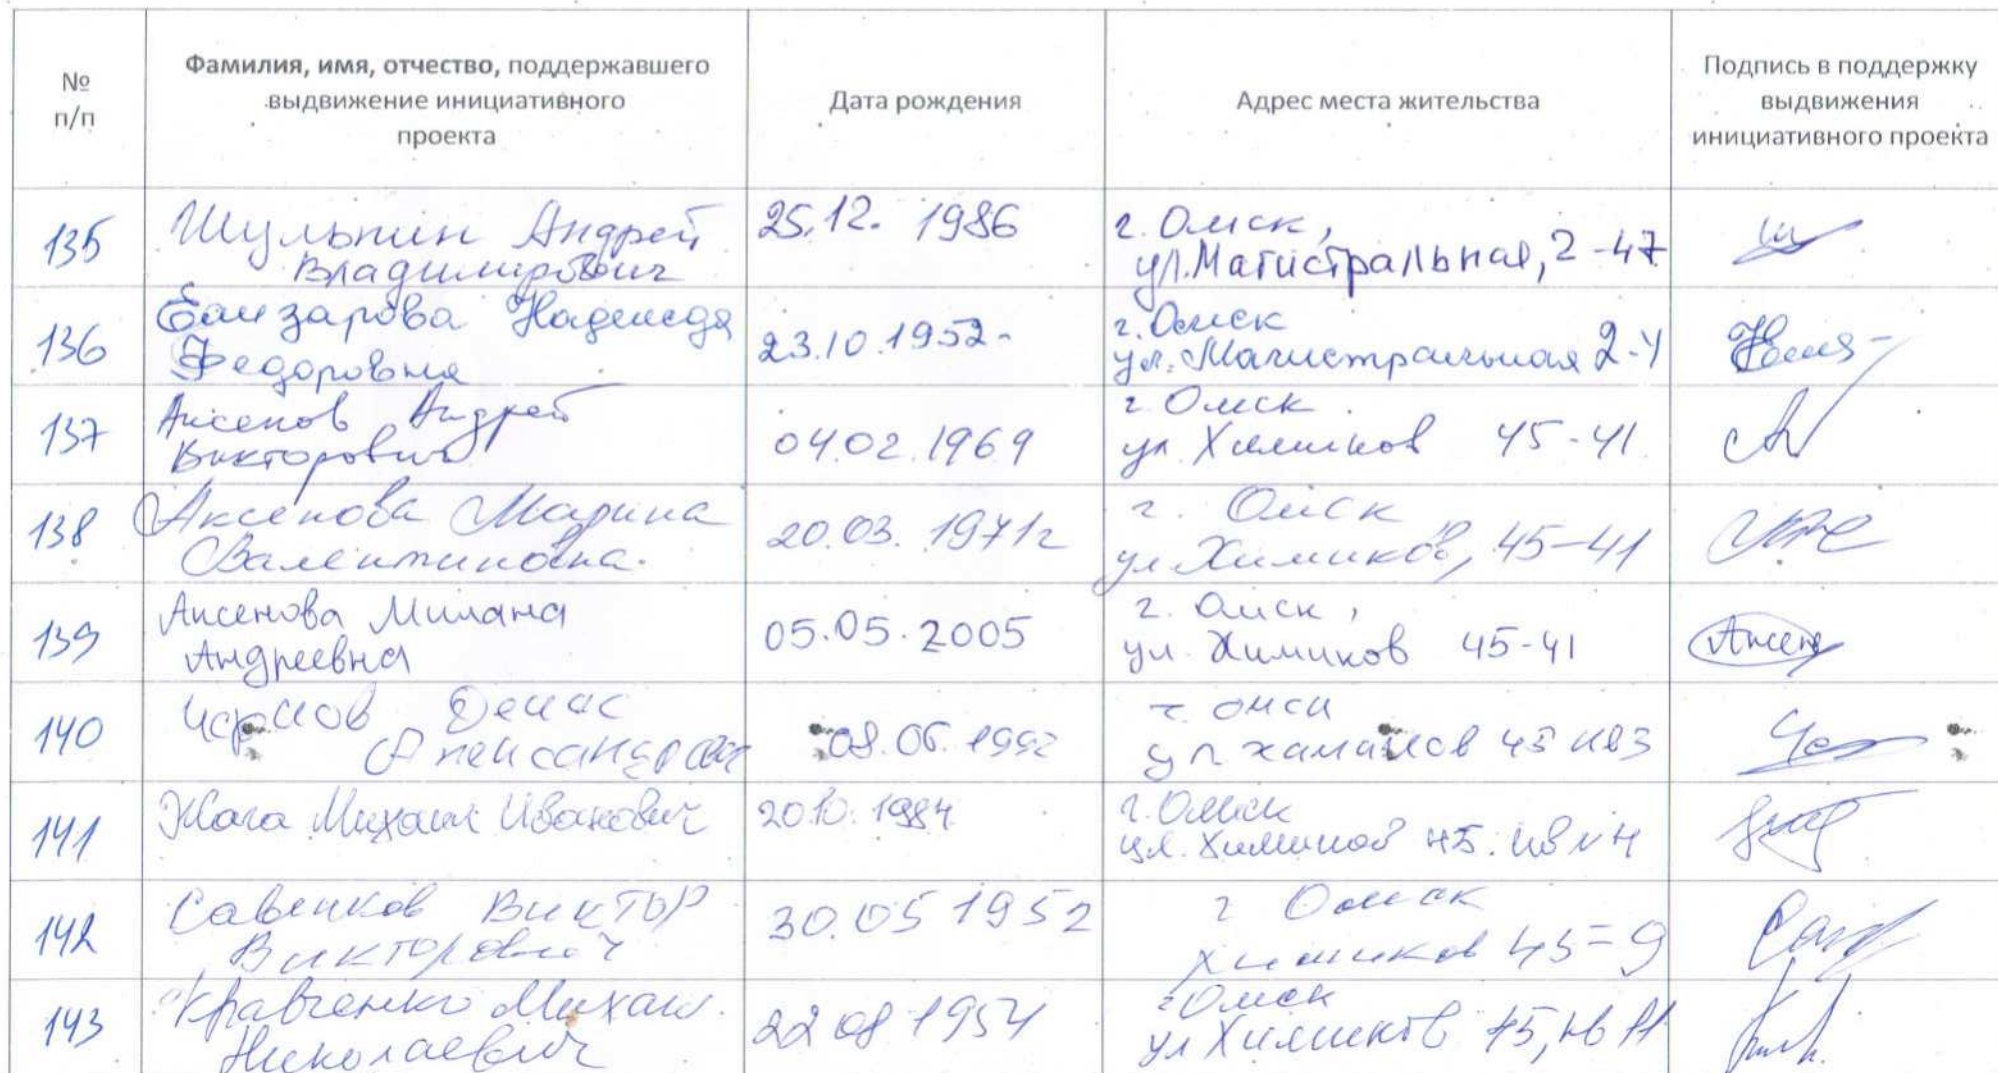 №
п/п
Фамилия, имя, отчество, поддержавшего
выдвижение инициативного
проекта
Дата рождения
Адрес места жительства
Подпись в поддержку
выдвижения
инициативного проекта
135
Шульпин Андрей
Владимирович
25.12. 1986
г. Омск,
ул. Магистральная, 2-47
136
Надежда
Федоровна
23.10.1952-
г. Омск
ул. Магистральная 2-4
137
Аксенов Андрей
Викторович
04.02.1969
г. Омск
ул. Химиков 45-41
138
Аксенова Марина
Валентиновна.
20.03. 1971г
г. Омск
ул Химиков, 45-41
139
Аксенова Милана
Андреевна
05.05.2005
г. Омск,
ул. Химиков 45-41
Аксен
140
Денис
Александрович
08.06.199
г. омск
ул 45 кв3
141
Михаил Иванович
20.10.1984
г. Омск
ул. Химиков 45. кв N4
142
Савенков Виктор
Викторович
30.05 1952
г Омск
Химиков 45=9
143
Кравченко Михаил
Николаевич
22 08 1954
г Омск
ул Химиков 45, кв